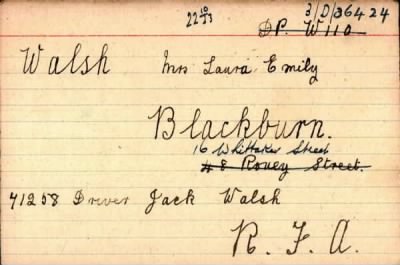 22 10/13 3/D/36424
D.P. W110
Walsh Mrs Laura Emily
Blackburn.
16 Whittaker Street
48 Street.
41258 Driver Jack Walsh
R. F. A.